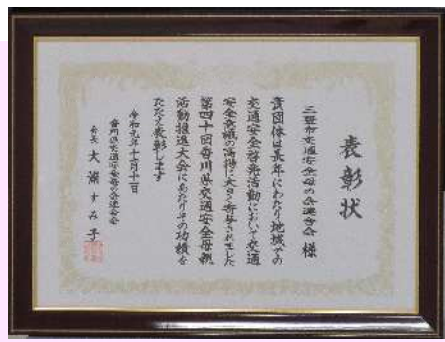 表彰状
三豊市交通安全母の会連合会 様
貴団体は長年にわたり地域での
交通安全啓発活動において交通
安全意識の高揚に大きく寄与されました
第四十回香川県交通安全母親
活動推進大会にあたりその功績を
たたえ表彰します
令和元年十月十一日
香川県交通安全母の会連合会
会長 大瀬すみ子